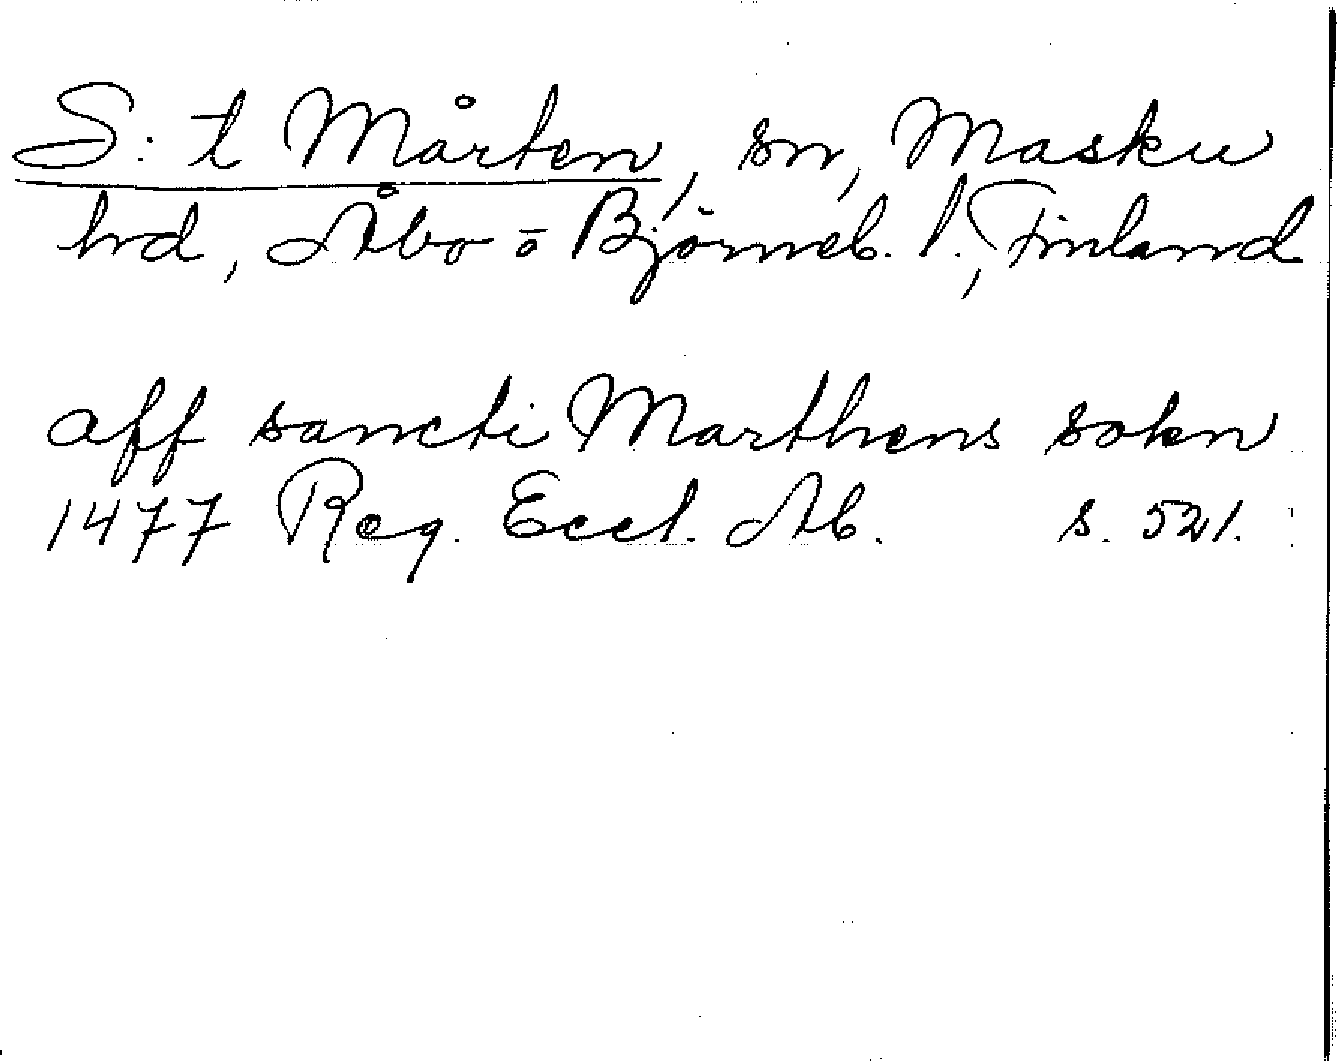 S:t Mårten, sn, Masku
hd, Åbo o Björneb. l., Finland
aff sancti Marthens sokn
1477 Reg. Eccl. Ab. s. 521.